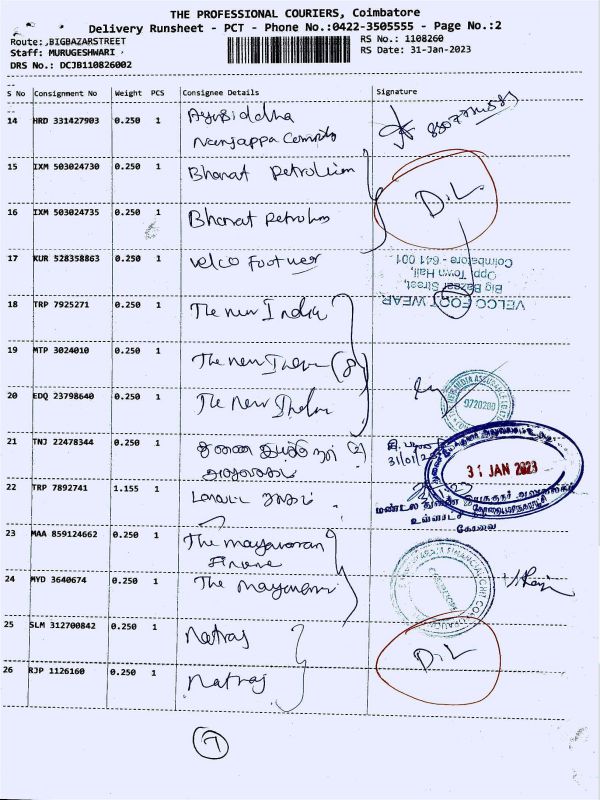 THE PROFESSIONAL COURIERS, Coimbatore
Delivery Runsheet - PCT - Phone No.:0422-3505555 - Page No.:2
Route: ,BIGBAZARSTREET
Staff: MURUGESHWARI
DRS No.: DCJB110826002
RS No.: 1108260
RS Date: 31-Jan-2023
S No Consignment No Weight PCS Consignee Details Signature
14 HRD 331427903 0.250 1 Ayusiddha
Nanjappa
15 IXM 503024730 0.250 1 Bharat Petrolium
D.L
16 IXM 503024735 0.250 1 Bharat
17 KUR 528358863 0.250 1 Velco Footwear
VELCO FOOT WEAR
Big Bazaar Street,
Opp. Town Hall,
Coimbatore - 641 001
18 TRP 7925271 0.250 1 The new India
19 MTP 3024010 0.250 1 The new
20 EDQ 23798640 0.250 1 The New
9720200
21 TNJ 22478344 0.250 1 துணை இயக்குநர் (2)
அலுவலகம்
31/01/
31 JAN 2023
22 TRP 7892741 1.155 1
மண்டல துணை இயக்குநர் அலுவலகம்
கோவை
23 MAA 859124662 0.250 1 The mayavaram
Finance
24 MYD 3640674 0.250 1 The
25 SLM 312700842 0.250 1 Natraj
D.L
26 RJP 1126160 0.250 1 Natraj
7